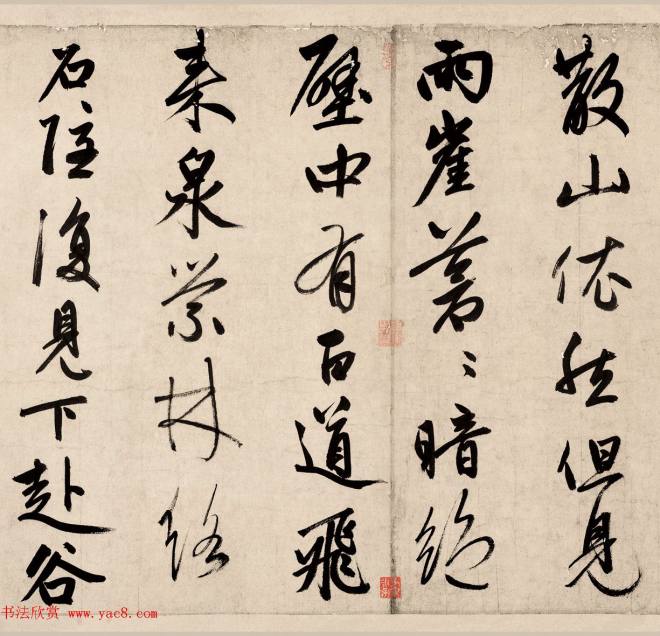 散山依然但見
兩崖蒼〻暗絶
壁中有百道飛
来泉縈林絡
石隱復見下赴谷
书法欣赏 www.yac8.com